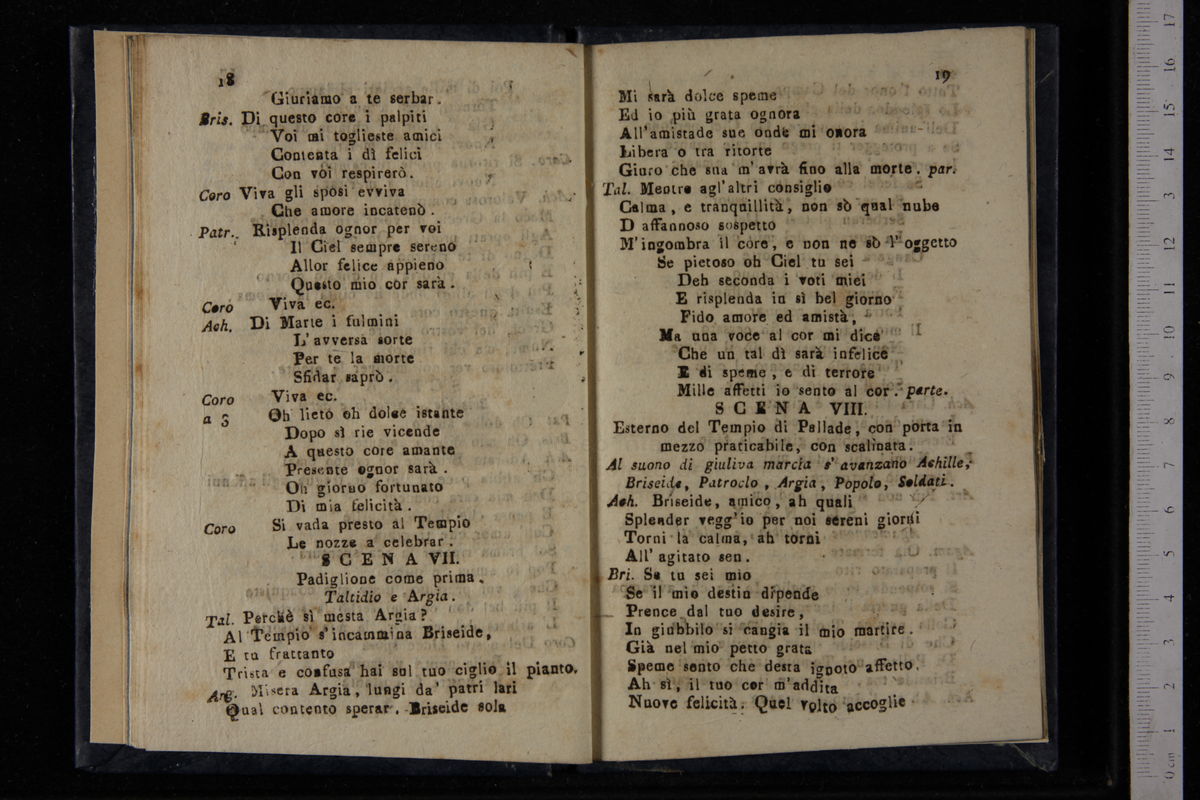 18
Giuriamo a te serbar.
Bris. Di questo core i palpiti
Voi mi toglieste amici
Contenta i dì felici
Con voi respirerò.
Coro Viva gli sposi evviva
Che amore incatenò.
Patr. Risplenda ognor per voi
Il Ciel sempre sereno
Allor felice appieno
Questo mio cor sarà.
Coro Viva ec.
Ach. Di Marte i fulmini
L'avversa sorte
Per te la morte
Sfidar saprò.
Coro Viva ec.
a 3 Oh lieto oh dolce istante
Dopo sì rie vicende
A questo core amante
Presente ognor sarà.
Oh giorno fortunato
Di mia felicità.
Coro Si vada presto al Tempio
Le nozze a celebrar.
SCENA VII.
Padiglione come prima.
Taltidio e Argia.
Tal. Perchè sì mesta Argia?
Al Tempio s'incammina Briseide,
E tu frattanto
Trista e confusa hai sul tuo ciglio il pianto.
Arg. Misera Argia, lungi da' patri lari
Qual contento sperar. Briseide sola
19
Mi sarà dolce speme
Ed io più grata ognora
All'amistade sue onde mi onora
Libera o tra ritorte
Giuro che sua m'avrà fino alla morte. par.
Tal. Mentre agl'altri consiglio
Calma, e tranquillità, non sò qual nube
D affannoso sospetto
M'ingombra il core, e non ne sò l'oggetto
Se pietoso oh Ciel tu sei
Deh seconda i voti miei
E risplenda in sì bel giorno
Fido amore ed amistà,
Ma una voce al cor mi dice
Che un tal dì sarà infelice
E di speme, e di terrore
Mille affetti io sento al cor. parte.
SCENA VIII.
Esterno del Tempio di Pallade, con porta in
mezzo praticabile, con scalinata.
Al suono di giuliva marcia s'avanzano Achille,
Briseide, Patroclo, Argia, Popolo, Soldati.
Ach. Briseide, amico, ah quali
Splender vegg'io per noi sereni giorni
Torni la calma, ah torni
All' agitato sen.
Bri. Se tu sei mio
Se il mio destin dipende
Prence dal tuo desire,
In giubbilo si cangia il mio martire.
Già nel mio petto grata
Speme sento che desta ignoto affetto.
Ah sì, il tuo cor m'addita
Nuove felicità. Quel volto accoglie
0 cm 1 2 3 4 5 6 7 8 9 10 11 12 13 14 15 16 17